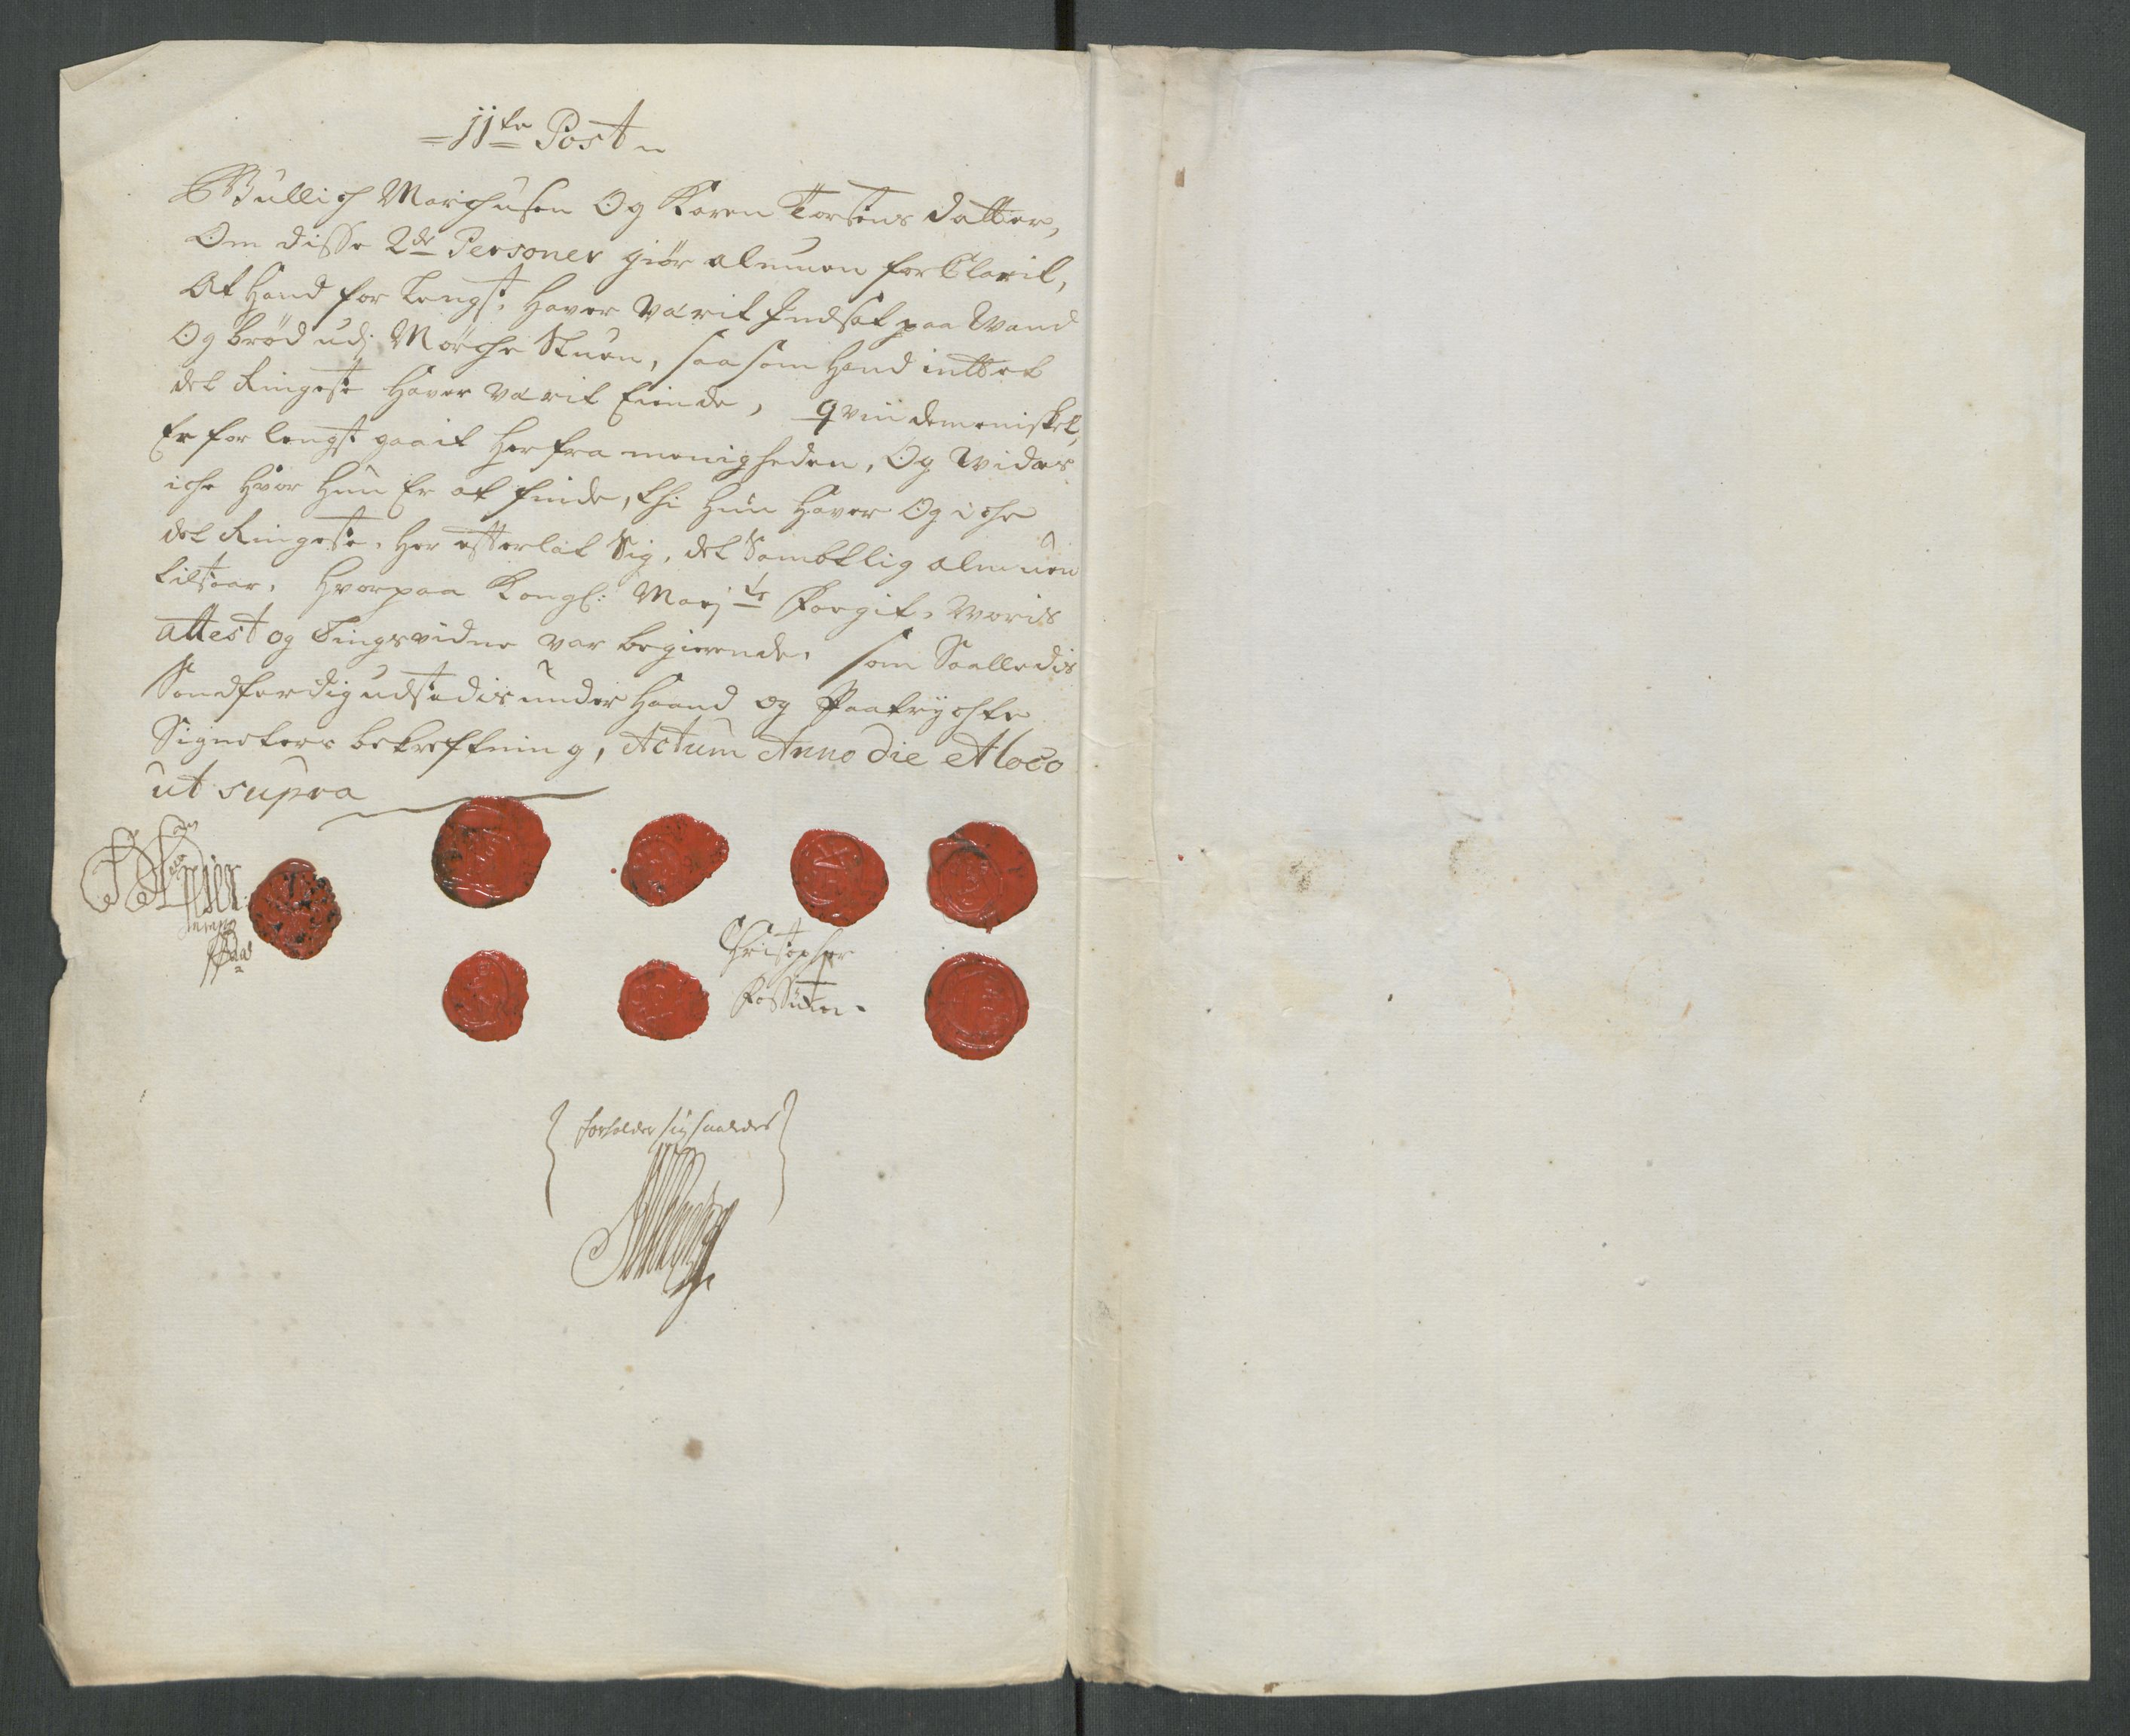 =11te Post
Gullich Marchusen Og Karen Torsens datter,
Om disse 2de Personer giør almuen forklarit,
At Hand for Lengst, haver Værit Indsat paa Vand
Og brød udj Mørche Stuen, saasom Hand inttet
det Ringeste haver værit Eiende, qvindemenisket,
Er for lengst gaait herfra menigheden, Og vides
iche hvor Hun Er at finde, thi Hun haver Og iche
det Ringeste, her efterlat Sig, det Sambtlig almuen
tilstaar. Hvorpaa Kongl: Mayts Fogit, Voris
attest og Tingsvidne var begierende, som Saalledis
Sandferdig udstædis under Haand og Paatrychte
Signeters bekreftning, Actum Anno die et loco
ut supra
Christopher
forholder sig saaledes